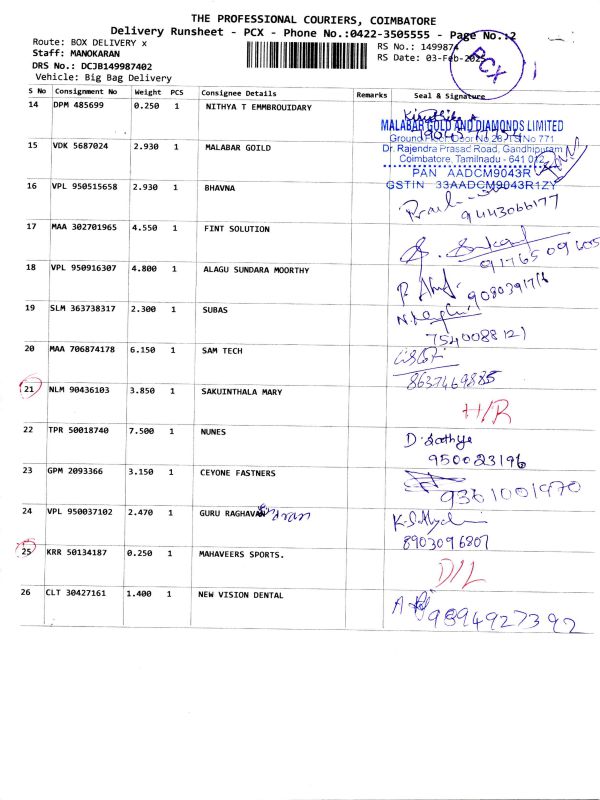 THE PROFESSIONAL COURIERS, COIMBATORE
Delivery Runsheet - PCX - Phone No.:0422-3505555 - Page No.:2
Route: BOX DELIVERY x
RS No.: 1499874
Staff: MANOKARAN
RS Date: 03-Feb-2025
DRS No.: DCJB149987402
PCX
Vehicle: Big Bag Delivery
S No Consignment No Weight PCS Consignee Details Remarks Seal & Signature
14 DPM 485699 0.250 1 NITHYA T EMMBROUIDARY
MALABAR GOLD AND DIAMONDS LIMITED
Ground Floor, Door No 771
15 VDK 5687024 2.930 1 MALABAR GOILD
Dr. Rajendra Prasad Road, Gandhipuram
Coimbatore, Tamilnadu - 641 012
PAN AADCM9043R
16 VPL 950515658 2.930 1 BHAVNA
GSTIN 33AADCM9043R1ZY
9443066177
17 MAA 302701965 4.550 1 FINT SOLUTION
9176509605
18 VPL 950916307 4.800 1 ALAGU SUNDARA MOORTHY
19 SLM 363738317 2.300 1 SUBAS
7540088121
20 MAA 706874178 6.150 1 SAM TECH
8637469885
21 NLM 90436103 3.850 1 SAKUINTHALA MARY
H/R
22 TPR 50018740 7.500 1 NUNES
D. Sathya
950023196
23 GPM 2093366 3.150 1 CEYONE FASTNERS
9361001970
24 VPL 950037102 2.470 1 GURU RAGHAVAN
8903096807
25 KRR 50134187 0.250 1 MAHAVEERS SPORTS.
D/L
26 CLT 30427161 1.400 1 NEW VISION DENTAL
9894927392